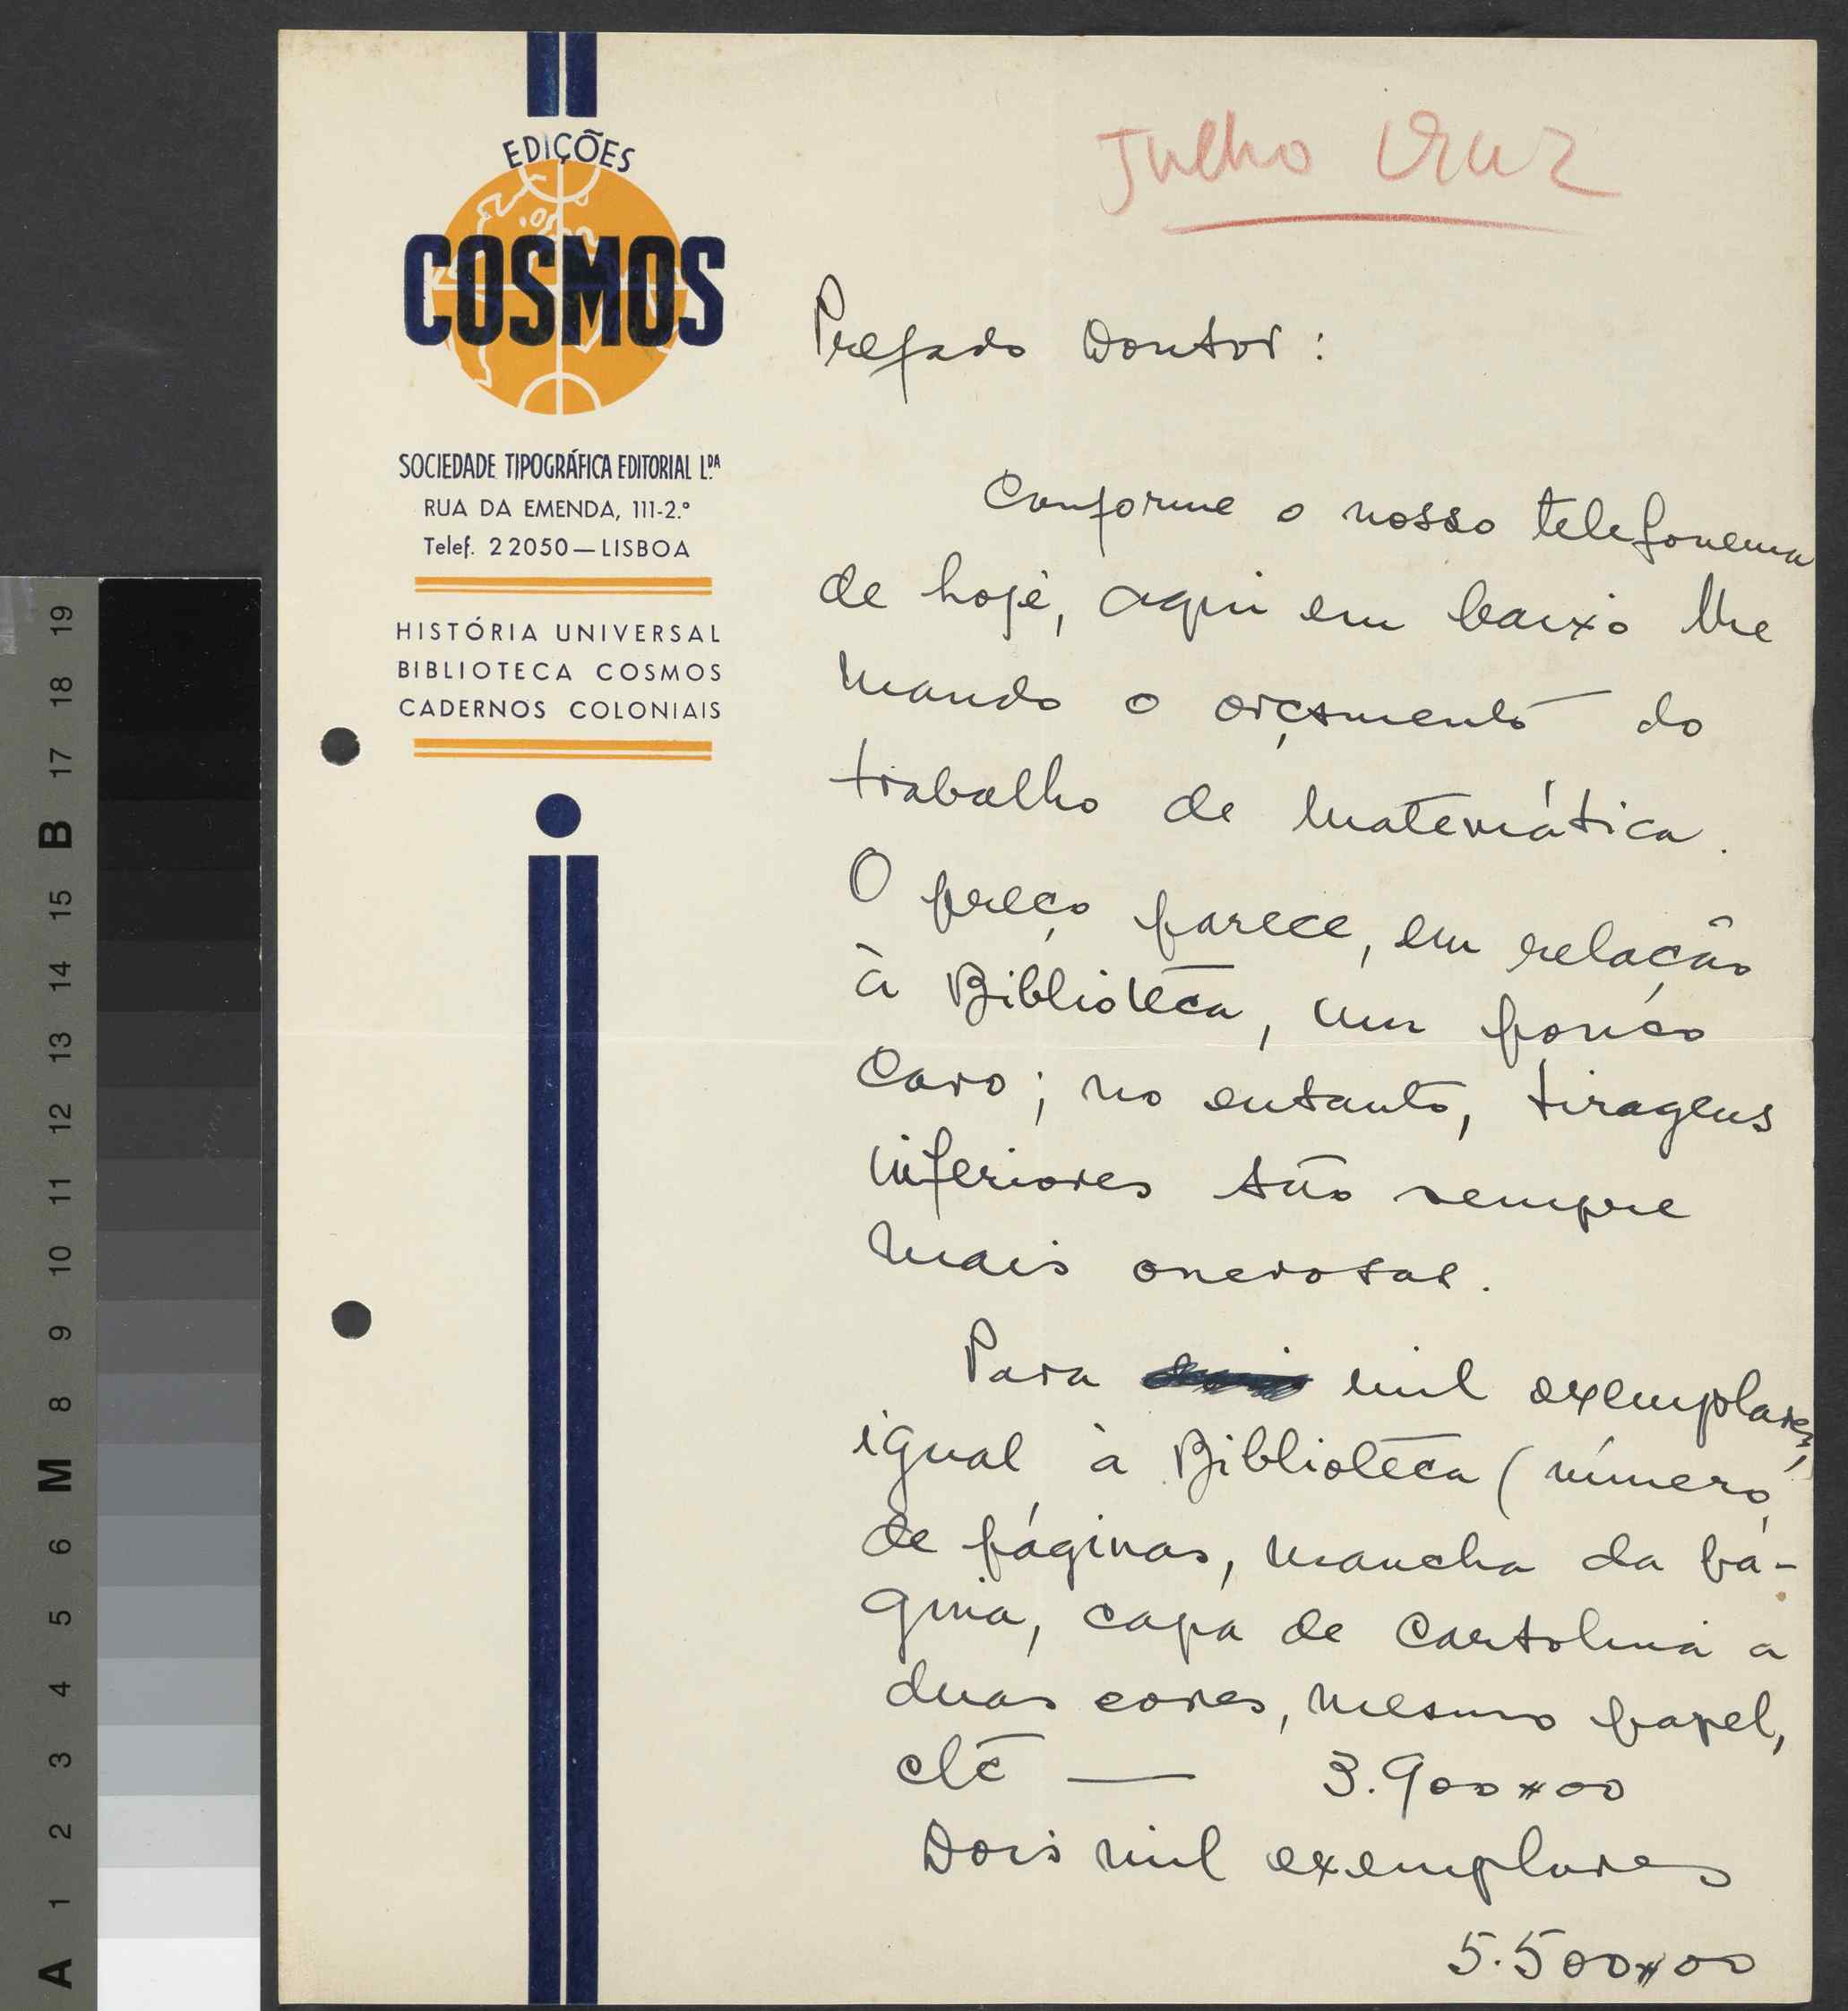 EDIÇÕES
COSMOS
SOCIEDADE TIPOGRÁFICA EDITORIAL L.DA
RUA DA EMENDA, 111-2.º
Telef. 22050—LISBOA
HISTÓRIA UNIVERSAL
BIBLIOTECA COSMOS
CADERNOS COLONIAIS
Julho Cruz
Prefado Doutor:
Conforme o nosso telefonema
de hoje, aqui em baixo lhe
mando o orçamento do
trabalho de matemática.
O preço parece, em relação
à Biblioteca, um pouco
caro; no entanto, tiragens
inferiores são sempre
mais onerosas.
Para mil exemplares,
igual à Biblioteca (número
de páginas, mancha da pá-
gina, capa de cartolina a
duas cores, mesmo papel,
etc — 3.900$00
Dois mil exemplares
5.500$00
A 1 2 3 4 5 6 M 8 9 10 11 12 13 14 15 B 17 18 19